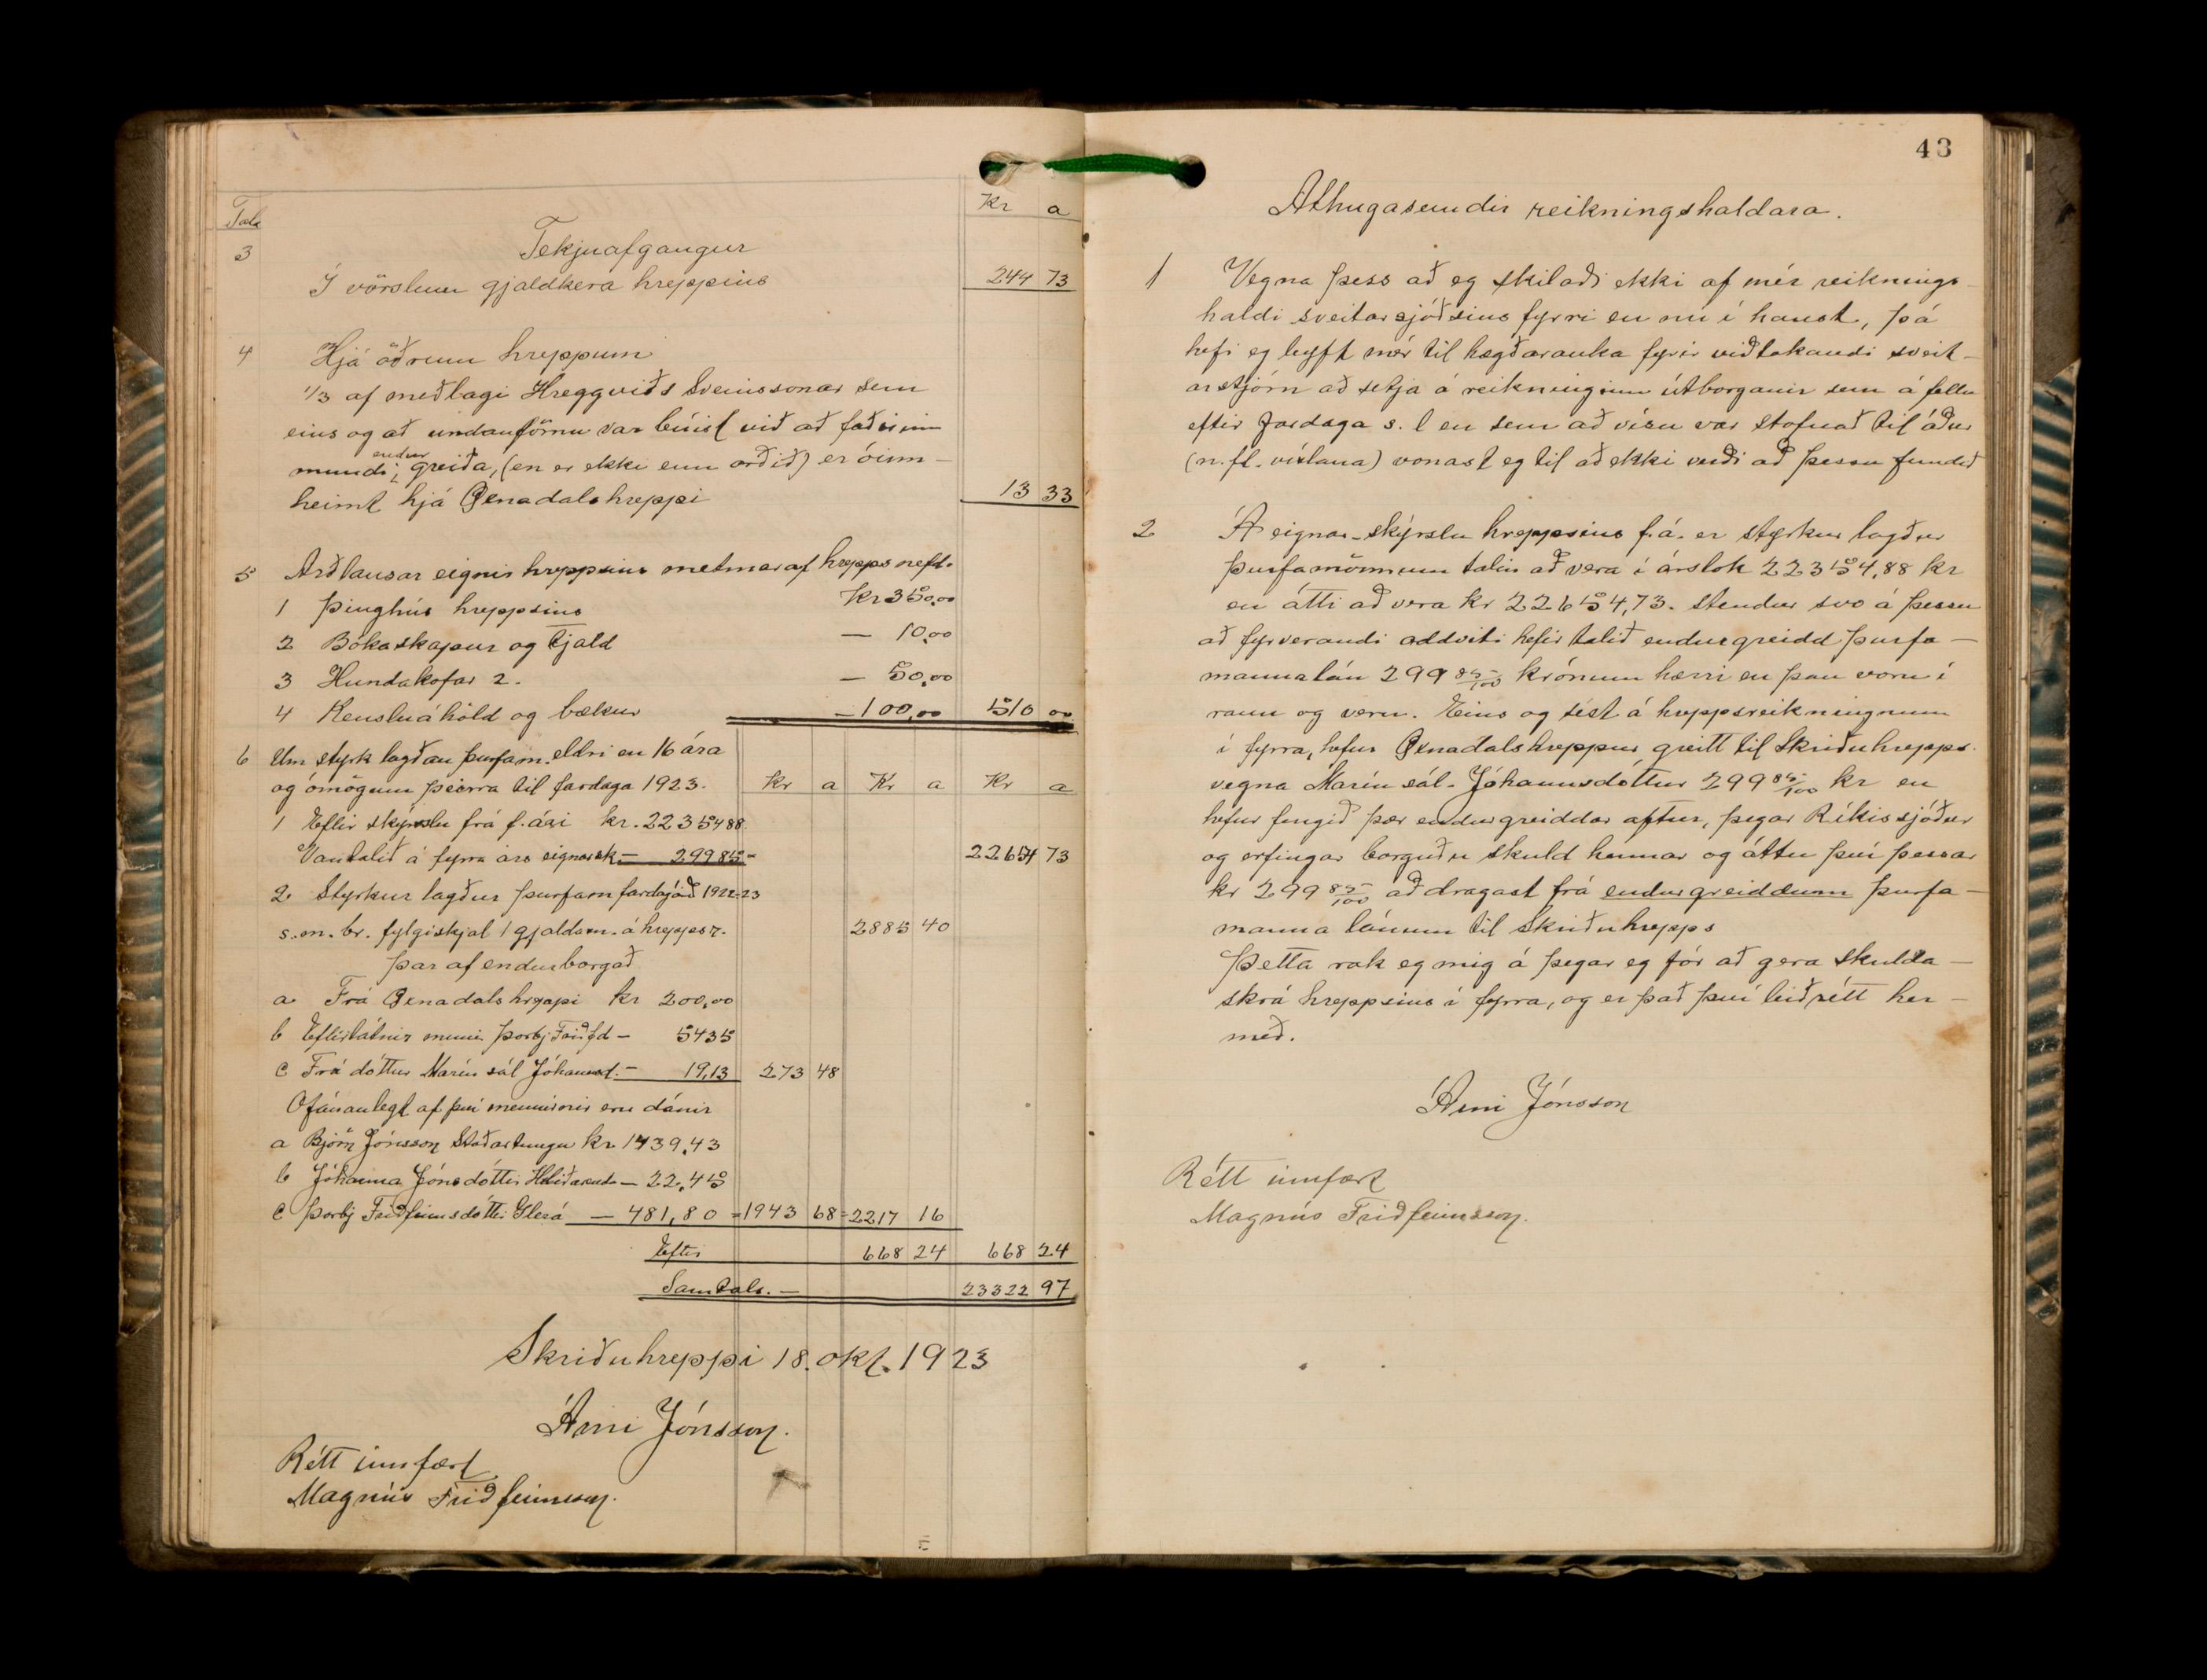 Kr a
Tala
3 Tekjuafgangur
Í vörslum gjaldkera hreppsins 244 73
4 Hjá öðrum hreppum
1/3 af meðlagi Hreggviðs Sveinssonar sem
eins og að undanförnu var búist við að faðirinn
mundi endur greiða, (en er ekki enn orðið) er óinn-
heimt hjá Öxnadalshreppi 13 33
5 Arðlausar eignir hreppsins metnar af hreppsnefd.
1 Þinghús hreppsins Kr 350,00
2 Bókaskápur og tjald — 10,00
3 Hundakofar 2. — 50,00
4 Kensluáhöld og bækur — 100,00 510 00
6 Um styrk lagðan þurfam. eldri en 16 ára
og ómögum þeirra til fardaga 1923. Kr a Kr a Kr a
1 Eftir skýrslu frá f. ári kr. 22354 88
Vantalið á fyrra árs eignask — 299 85 = 22654 73
2. Styrkur lagður þurfam fardagaárið 1922-23
s.m. br. fylgiskjal 1 gjaldam. á hreppsr. 2885 40
Þar af endurborgað
a Frá Öxnadalshreppi kr 200,00
b Eftirlátnir munir Þorbj Friðfd — 54 35
c Frá dóttur Marín sál Jóhannsd. — 19,13 273 48
Ófáanlegt af því mennirnir eru dánir
a Björn Jónsson Staðartungu kr. 1439,43
b Jóhanna Jónsdóttir Hlíðarenda — 22,45
c Þorbj Friðfinnsdóttir Glerá — 481,80 = 1943 68 = 2217 16
Eftir 668 24 668 24
Samtals. — 23322 97
Skriðuhreppi 18. okt. 1923
Árni Jónsson.
Rétt innfært
Magnús Friðfinnsson.
43
Athugasemdir reikningshaldara.
1 Vegna þess að eg skilaði ekki af mér reiknings-
haldi sveitarsjóðsins fyrri en nú í haust, þá
hefi eg leyft mér til hægðarauka fyrir viðtakandi sveit-
arstjórn að setja á reikninginn útborganir sem á fellu
eftir fardaga s. l en sem að vísu var stofnað til áður
(n. fl. víxlana) vonast eg til að ekki verði að þessu fundið
2 Á eignar-skýrslu hreppsins f. á. er styrkur lagður
þurfamönnum talin að vera í árslok 22354,88 kr
en átti að vera kr 22654,73. stendur svo á þessu
að fyrverandi oddviti hefir talið endurgreidd þurfa-
mannalán 299 85/100 krónum hærri en þau voru í
raun og veru. Eins og sést á hreppsreikningnum
í fyrra, hefur Öxnadalshreppur greitt til Skriðuhrepps
vegna Marín sál. Jóhannsdóttur 299 85/100 kr en
hefur fengið þær endurgreiddar aftur, þegar Ríkissjóður
og erfingar borguðu skuld hennar og áttu því þessar
kr 299 85/100 að dragast frá endurgreiddum þurfa-
manna lánum til Skriðuhrepps
Þetta rak eg mig á þegar eg fór að gera skulda-
skrá hreppsins í fyrra, og er það því leiðrétt her-
með.
Árni Jónsson
Rétt innfært
Magnús Friðfinnsson.